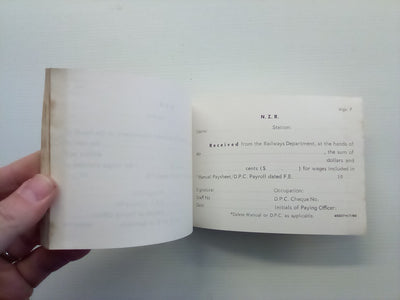 N. Z. R.
Station:
Received from the Railways Department, at the hands of
, the sum of
dollars and
cents ($ ) for wages included in
*Manual Paysheet/D.P.C. Payroll dated P.E. 19
Signature: Occupation:
Staff No D.P.C. Cheque No:
Date: Initials of Paying Officer:
*Delete Manual or D.P.C. as applicable.